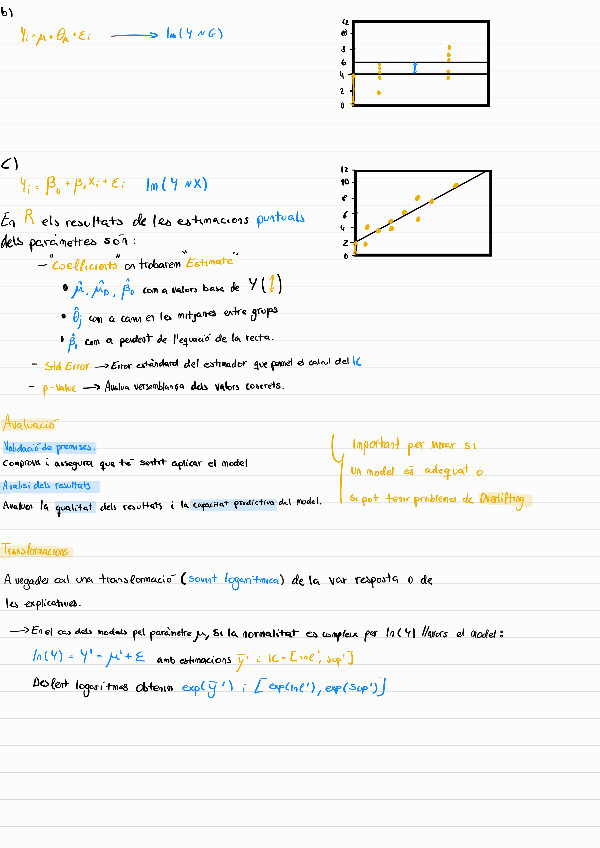 b)
Yi = μ + θj + εi ⟶ lm(Y ~ G)
12
10
8
6
4
2
0
c)
Yi = β0 + β1Xi + εi lm(Y ~ X)
12
10
8
6
4
2
0
En R els resultats de les estimacions puntuals
dels paràmetres són:
- "Coefficients" on trobarem "Estimate"
• μ̂, μ̂D, β̂0 com a valors base de Y (↕)
• θ̂j com a canvi en les mitjanes entre grups
• β̂1 com a pendent de l'equació de la recta.
- Std Error → Error estàndard del estimador que permet el calcul del IC
- p-value → Avalua versemblança dels valors concrets.
Avaluació
Validació de premises.
Comprova i assegura que té sentit aplicar el model
Analisi dels resultats
Avaluar la qualitat dels resultats i la capacitat predictiva del model.
Important per mirar si
un model es adequat o
si pot tenir problemes de Overfitting
Transformacions
A vegades cal una transformació (sovint logarítmica) de la var resposta o de
les explicatives.
→ En el cas dels models pel paràmetre μ, si la normalitat es compleix per ln(Y) llavors el model:
ln(Y) = Y' = μ' + ε amb estimacions ȳ' i IC = [inf', sup']
Desfent logaritmes obtenim exp(ȳ') i [exp(inf'), exp(sup')]